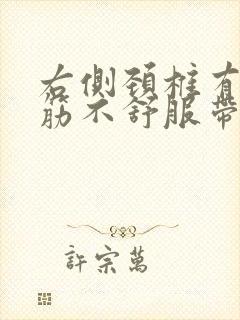 右側頚椎有
筋不舒服帶
許宗萬